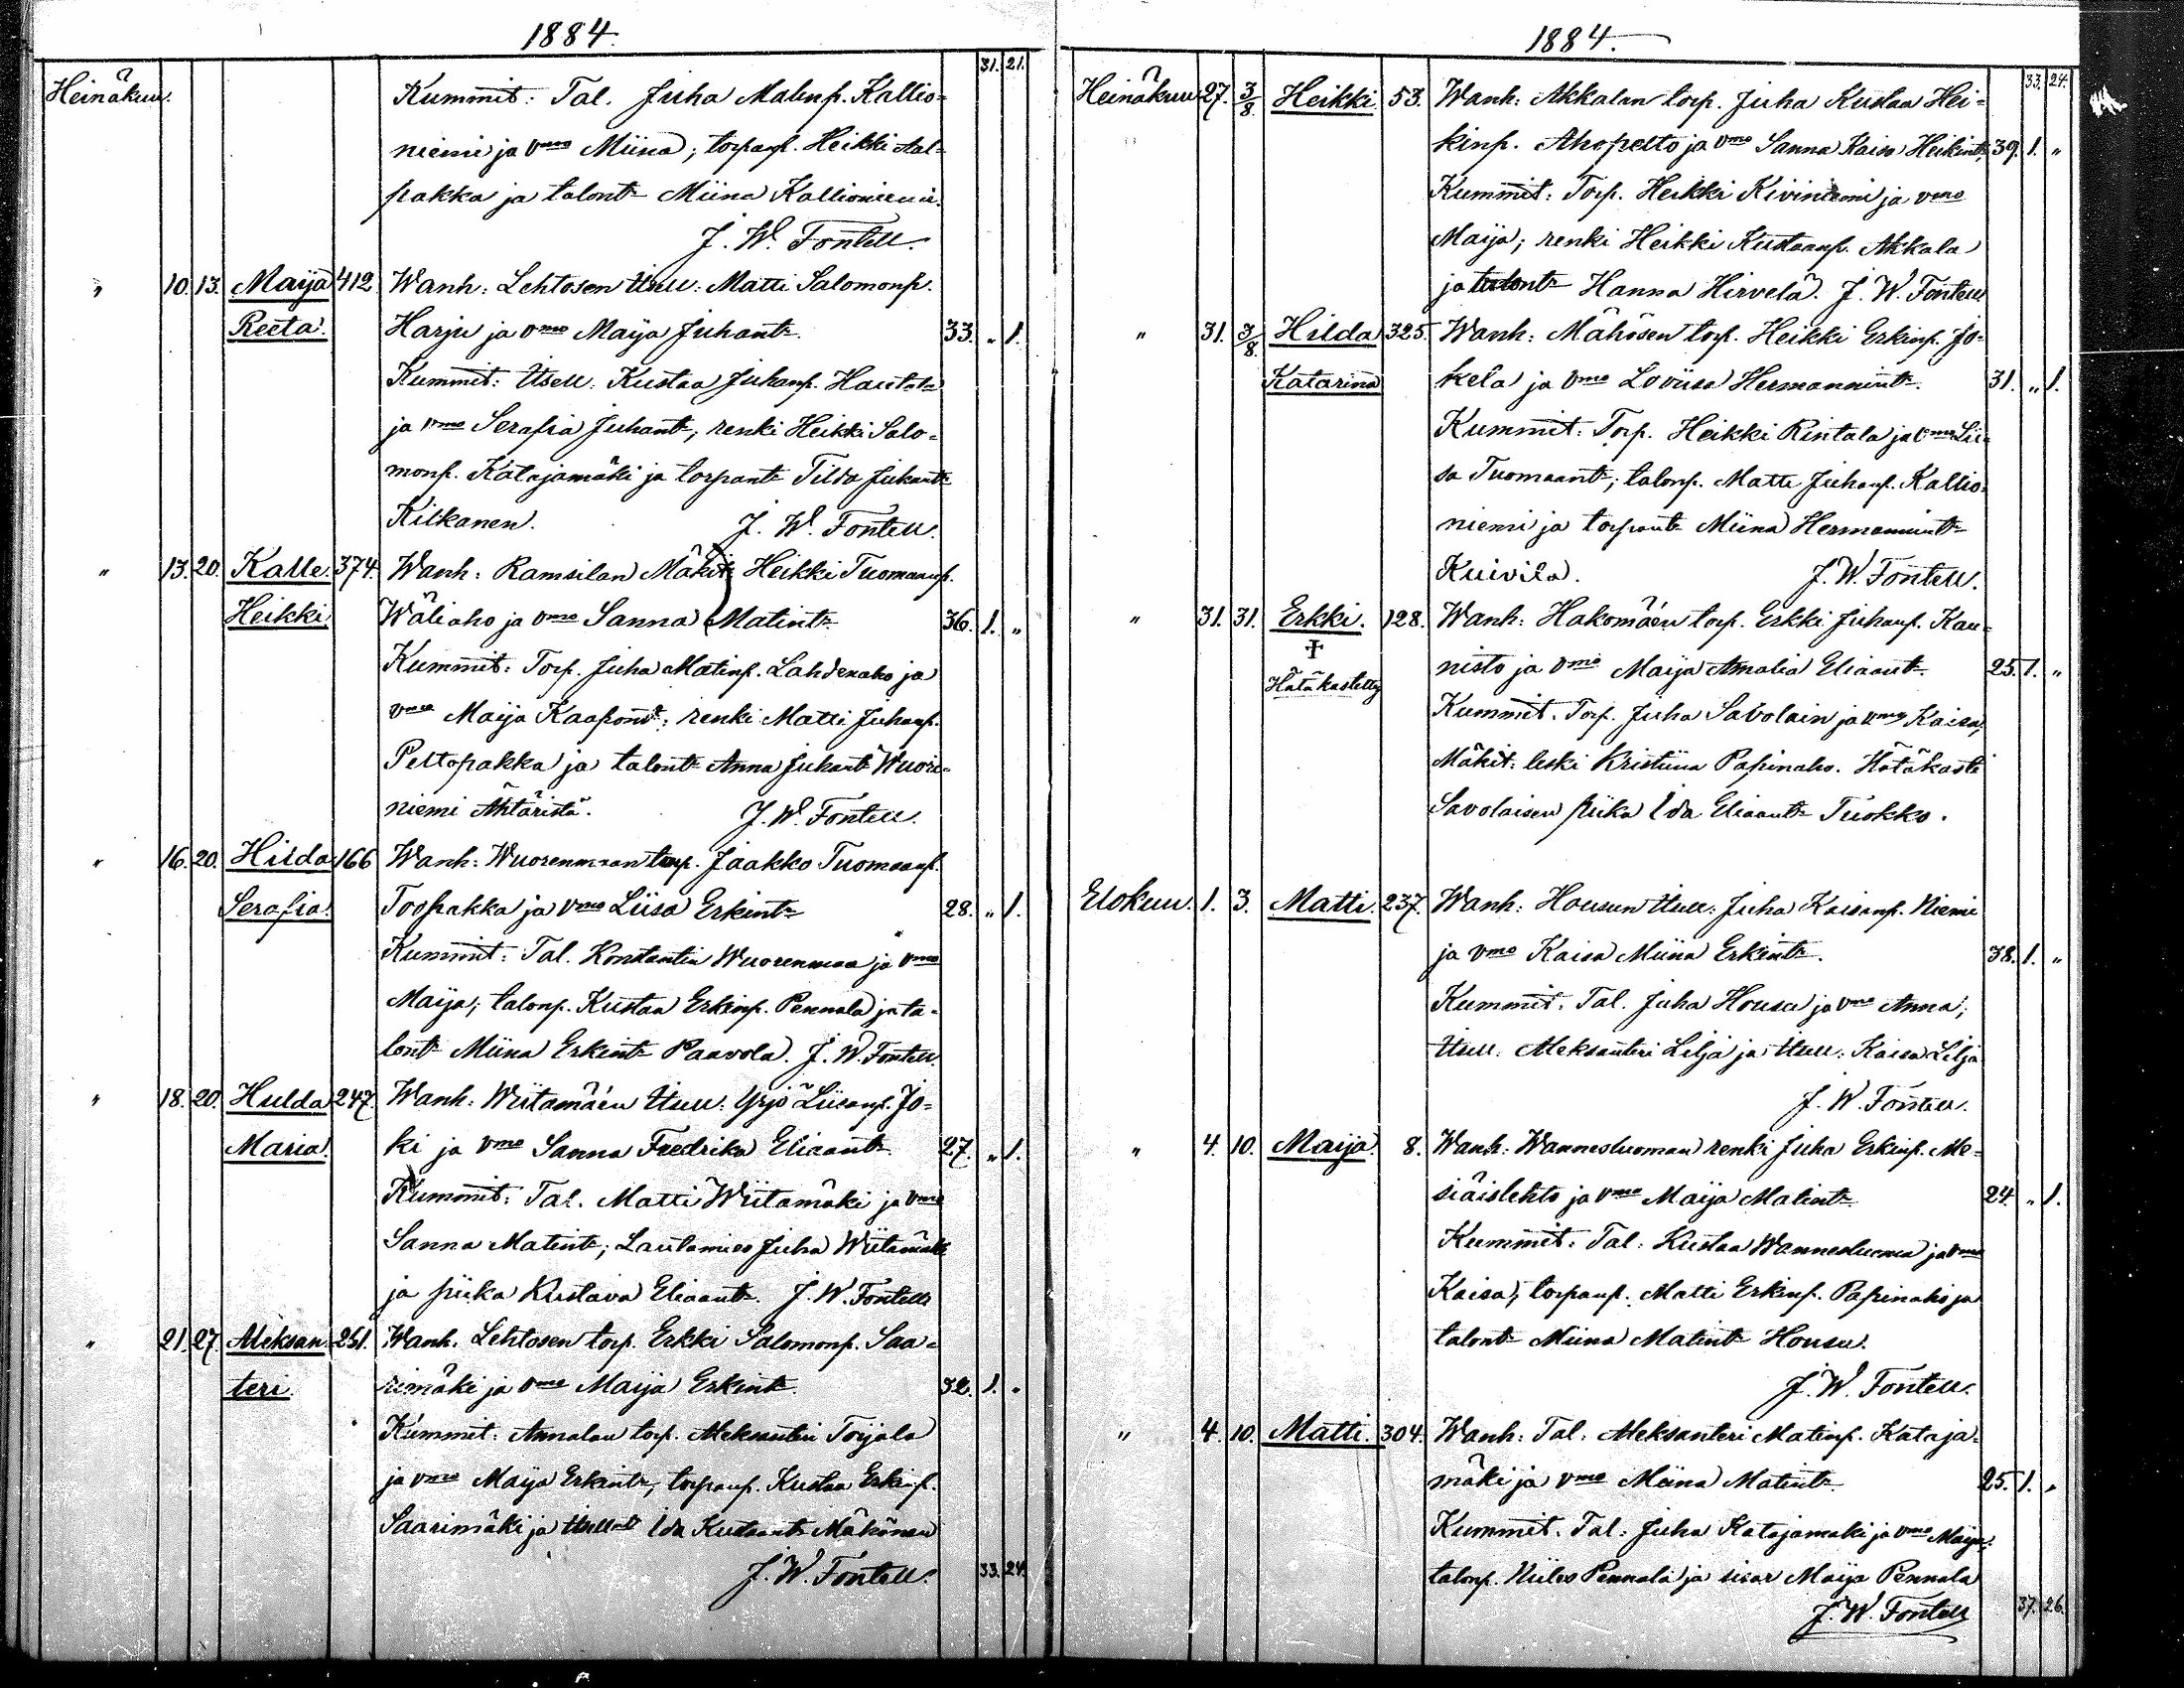 1884.
31. 21.
Heinäkuu. Kummit: Tal. Juha Matinp. Kallio-
niemi ja vmo Miina; torpanp. Heikki Aal-
pakka ja talont. Miina Kallioniemi.
J. W. Fontell.
" 10. 13. Maija 412 Wanh: Lehtosen itsell: Matti Salomonp.
Reeta. Harju ja vmo Maija Juhant. 33. " 1.
Kummit: Itsell: Kustaa Juhanp. Hautala
ja vmo Serafia Juhant; renki Heikki Salo-
monp. Katajamäki ja torpant. Tilda Juhant.
Kilkanen. J. W. Fontell.
" 13. 20. Kalle. 374. Wanh: Ramsilan Mäkit: Heikki Tuomaanp.
Heikki. Wäliaho ja vmo Sanna Matint. 36. 1. "
Kummit: Torp. Juha Matinp. Lahdenaho ja
vmo Maija Kaapont; renki Matti Juhanp.
Peltopakka ja talont. Anna Juhant. Wuori-
niemi Ähtäristä. J. W. Fontell.
" 16. 20. Hilda 166 Wanh: Wuorenmaan torp. Jaakko Tuomaanp.
Serafia. Toopakka ja vmo Liisa Erkint. 28. " 1.
Kummit: Tal. Konstantin Wuorenmaa ja vmo
Maija; talonp. Kustaa Erkinp. Pennala ja ta-
lont. Miina Erkint. Paavola. J. W. Fontell.
" 18. 20. Hulda 247. Wanh: Wiitamäen itsell: Yrjö Liisanp. Jo-
Maria. ki ja vmo Sanna Fredrika Eliaant. 27. " 1.
Kummit: Tal. Matti Wiitamäki ja vmo
Sanna Matint; Lautamies Juha Wiitamäki
ja piika Kustava Eliaant. J. W. Fontell
" 21. 27. Aleksan- 251. Wanh. Lehtosen torp. Erkki Salomonp. Saa-
teri. rimäki ja vmo Maija Erkint. 32. 1. "
Kummit: Annalan torp. Aleksanteri Torjala
ja vmo Maija Erkint; torpanp. Kustaa Erkinp.
Saarimäki ja itsell. Ida Kustaant. Mäkönen
J. W. Fontell. 33. 24.
1884.
33. 24.
Heinäkuu 27. 3/8. Heikki. 53. Wanh: Akkalan torp. Juha Kustaa Hei-
kinp. Ahopelto ja vmo Sanna Kaisa Heikint. 39. 1. "
Kummit: Torp. Heikki Kiviniemi ja vmo
Maija; renki Heikki Kustaanp. Akkala
ja talont. Hanna Hirvelä. J. W. Fontell
" 31. 3/8. Hilda 325. Wanh: Mähösen torp. Heikki Erkinp. Jo-
Katarina kela ja vmo Loviisa Hermannint. 31. " 1.
Kummit: Torp. Heikki Rintala ja vmo Lii-
sa Tuomaant; talonp. Matti Juhanp. Kallio-
niemi ja torpant. Miina Hermannint.
Kuivila. J. W. Fontell.
" 31. 31. Erkki. 128. Wanh: Hakomäen torp. Erkki Juhanp. Kau-
nisto ja vmo Maija Amalia Eliaant. 25. 1. "
Hätäkastettu Kummit. Torp. Juha Savolain ja vmo Kaisa;
Mäkit: leski Kristiina Papinaho. Hätäkasti
Savolaisen piika Ida Eliaant. Tuokko.
Elokuu. 1. 3. Matti. 237. Wanh: Housun itsell: Juha Kaisanp. Niemi
ja vmo Kaisa Miina Erkint. 38. 1. "
Kummit. Tal. Juha Housu ja vmo Anna;
itsell. Aleksanteri Lilja ja itsell: Kaisa Lilja
J. W. Fontell.
" 4. 10. Maija. 8. Wanh: Wannesluoman renki Juha Erkinp. Me-
siäislehto ja vmo Maija Matint. 24. " 1.
Kummit: Tal: Kustaa Wannesluoma ja vmo
Kaisa; torpanp. Matti Erkinp. Papinaho ja
talont. Miina Matint. Housu.
J. W. Fontell.
" 4. 10. Matti. 304. Wanh: Tal: Aleksanteri Matinp. Kataja-
mäki ja vmo Miina Matint. 25. 1. "
Kummit. Tal: Juha Katajamäki ja vmo Maija;
talonp. Niilos Pennala ja sisar Maija Pennala
J. W. Fontell 37. 26.